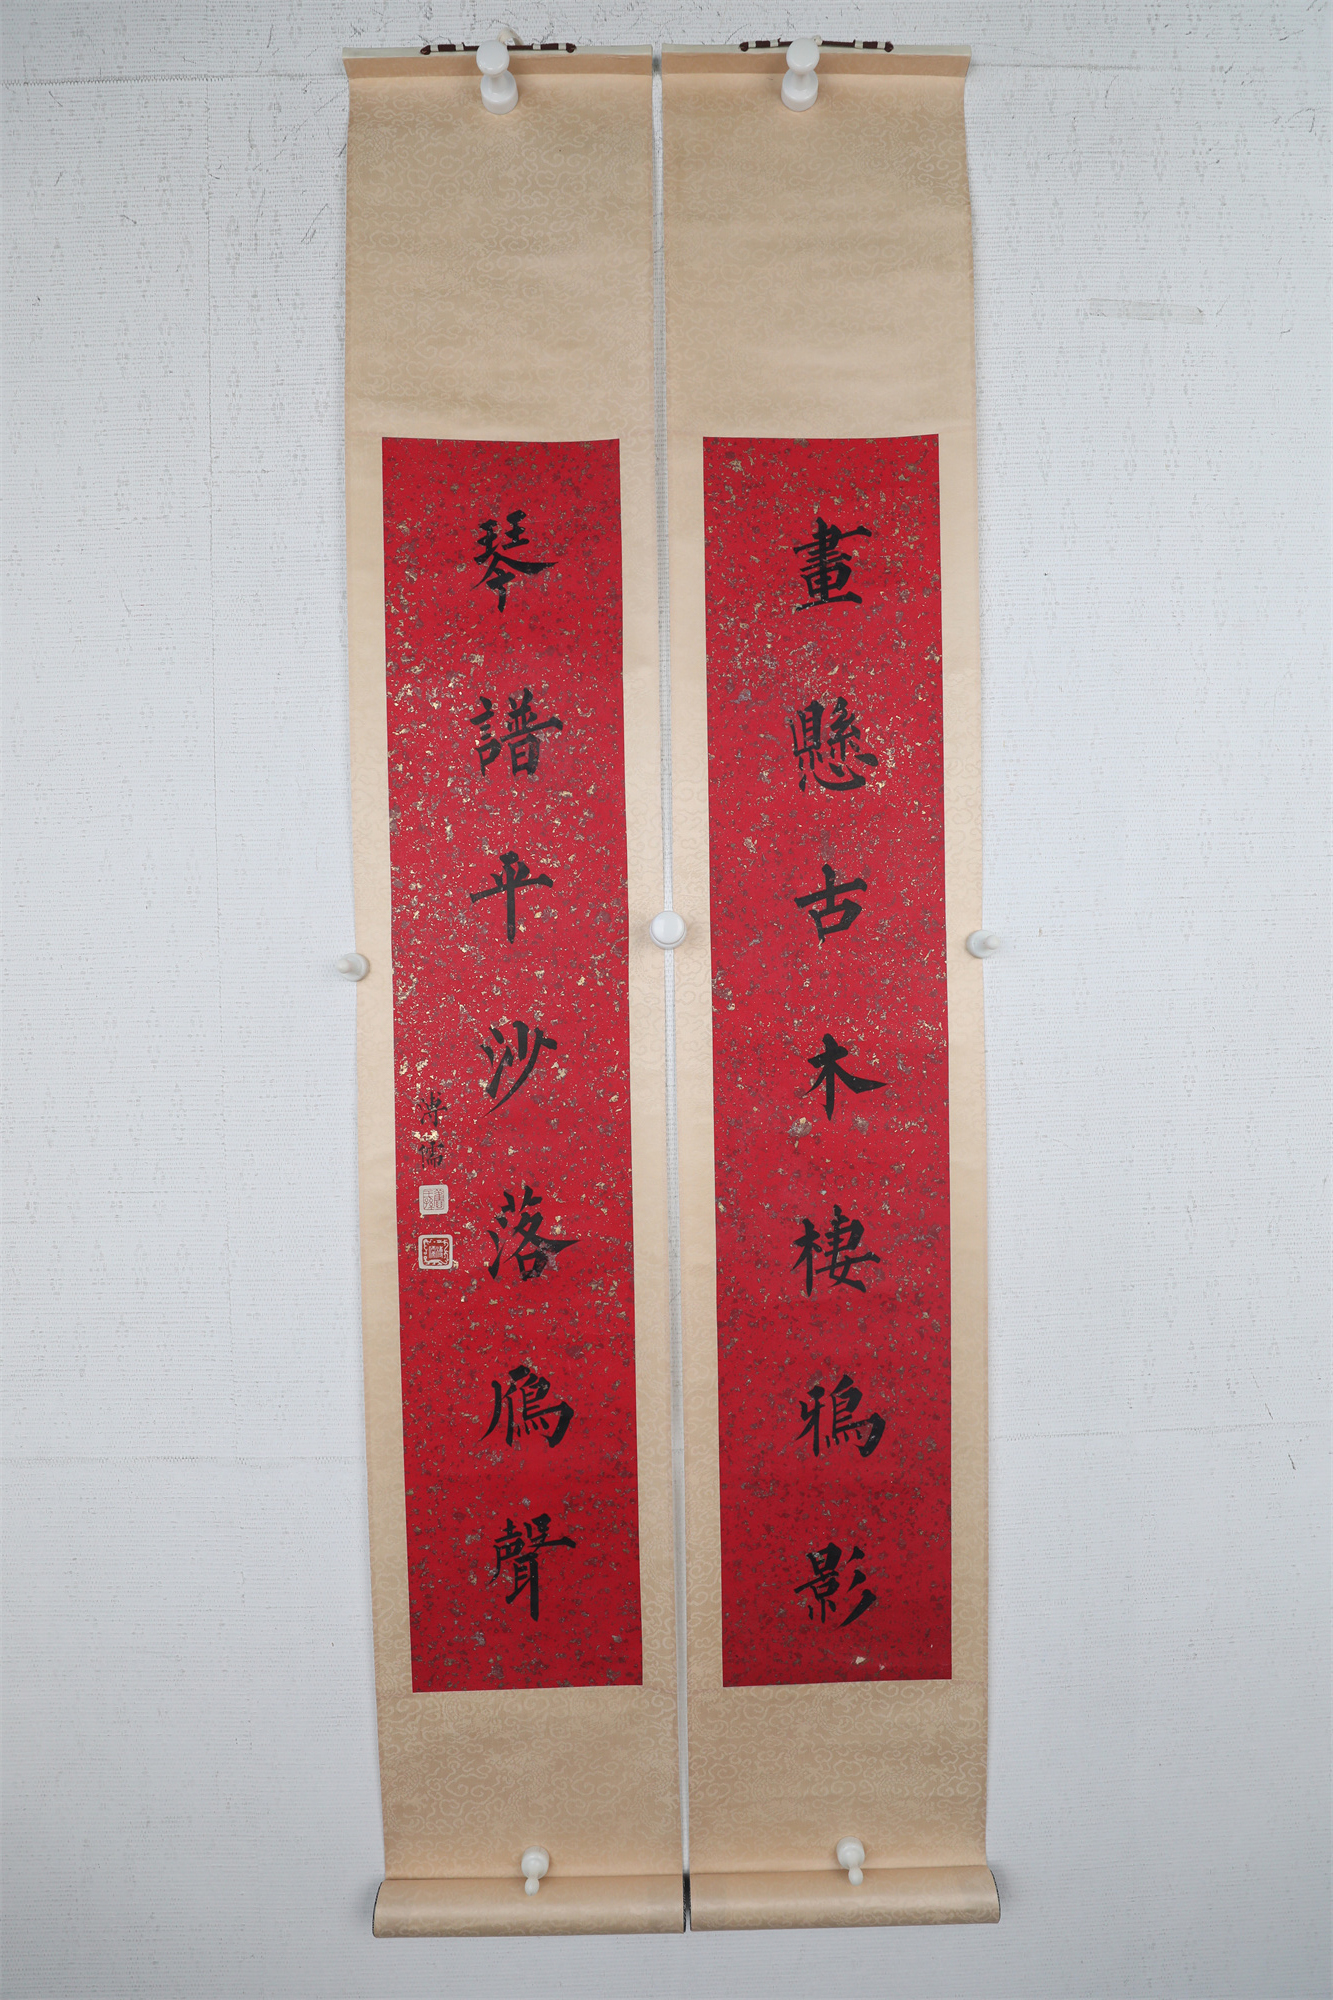 畫懸古木棲鴉影
琴譜平沙落鴈聲
溥儒